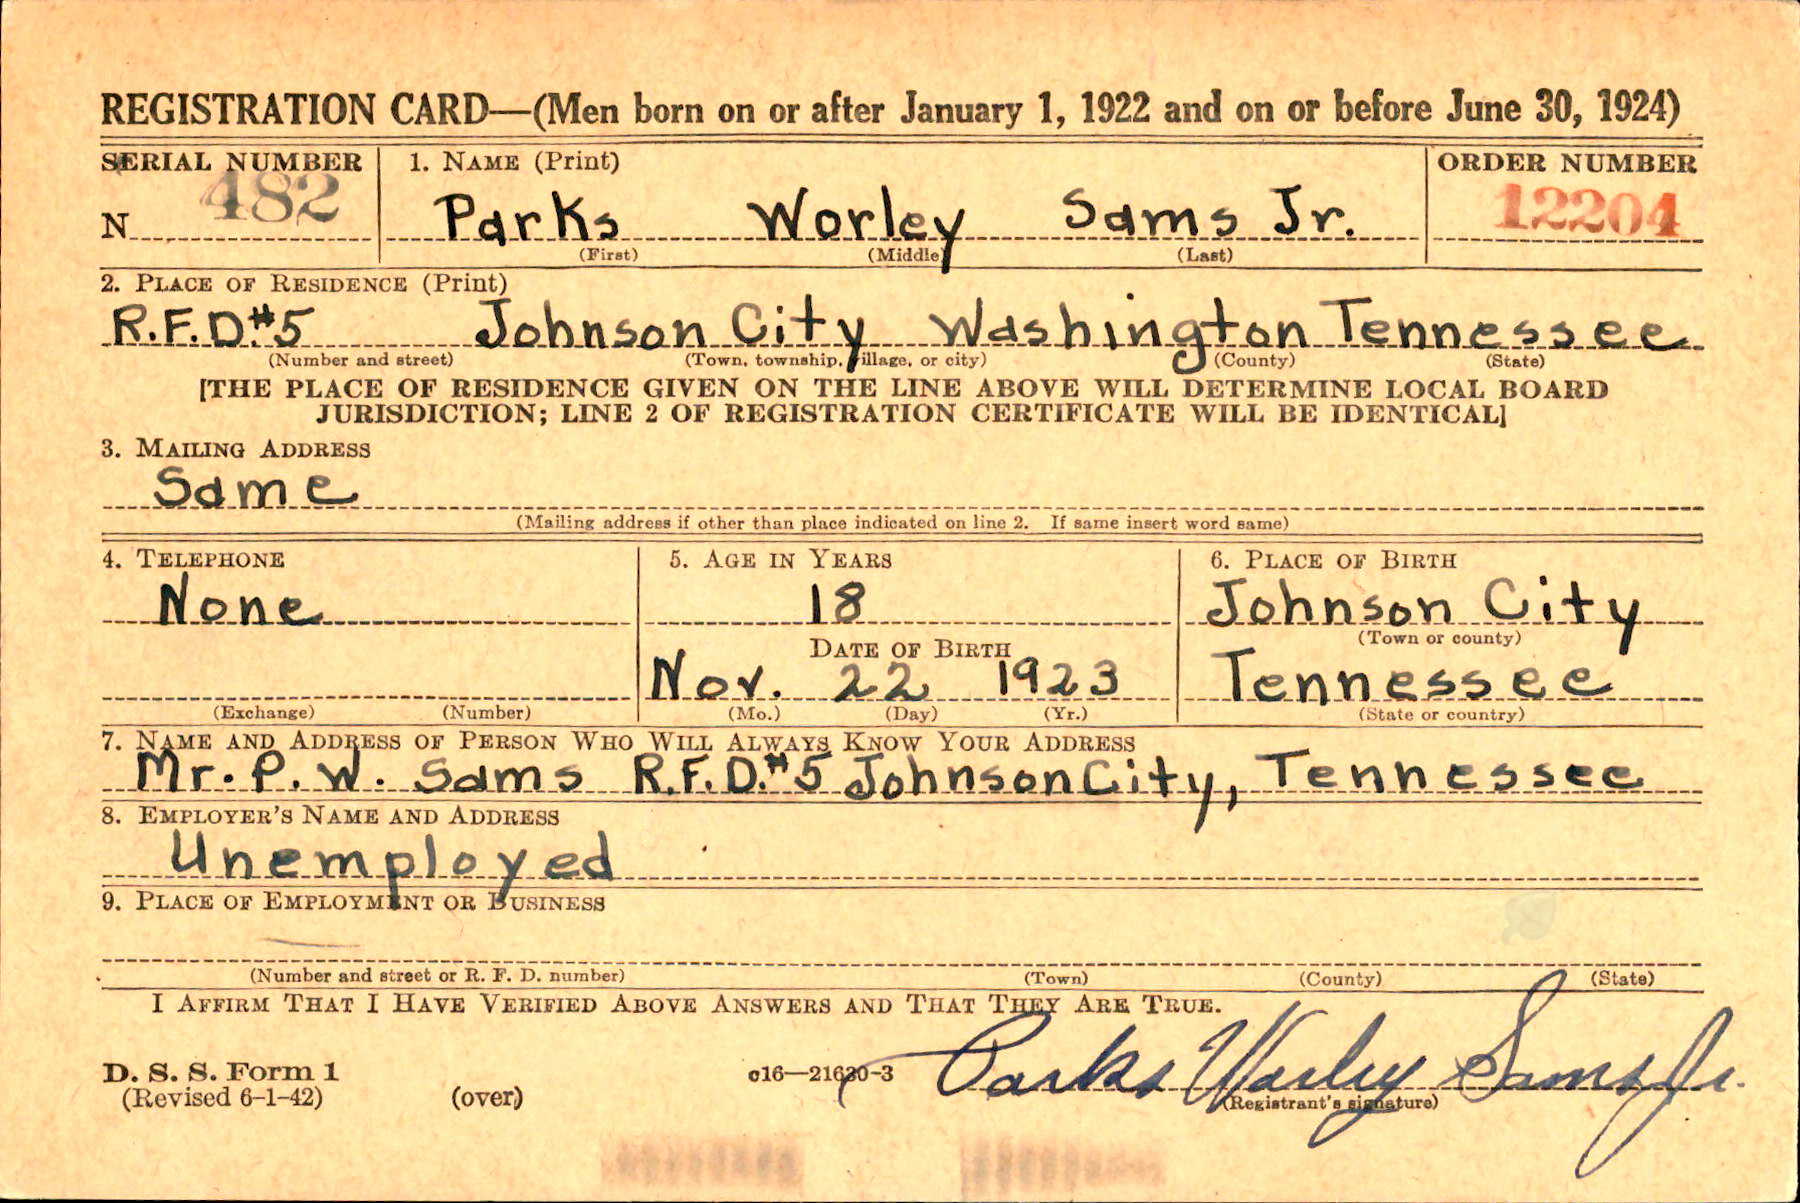 REGISTRATION CARD—(Men born on or after January 1, 1922 and on or before June 30, 1924)
SERIAL NUMBER 1. NAME (Print) ORDER NUMBER
N 482 Parks Worley Sams Jr. 12204
(First) (Middle) (Last)
2. PLACE OF RESIDENCE (Print)
R.F.D.#5 Johnson City Washington Tennessee
(Number and street) (Town, township, village, or city) (County) (State)
[THE PLACE OF RESIDENCE GIVEN ON THE LINE ABOVE WILL DETERMINE LOCAL BOARD
JURISDICTION; LINE 2 OF REGISTRATION CERTIFICATE WILL BE IDENTICAL]
3. MAILING ADDRESS
Same
(Mailing address if other than place indicated on line 2. If same insert word same)
4. TELEPHONE 5. AGE IN YEARS 6. PLACE OF BIRTH
None 18 Johnson City
DATE OF BIRTH (Town or county)
Nov. 22 1923 Tennessee
(Exchange) (Number) (Mo.) (Day) (Yr.) (State or country)
7. NAME AND ADDRESS OF PERSON WHO WILL ALWAYS KNOW YOUR ADDRESS
Mr. P. W. Sams R.F.D.#5 Johnson City, Tennessee
8. EMPLOYER'S NAME AND ADDRESS
Unemployed
9. PLACE OF EMPLOYMENT OR BUSINESS
(Number and street or R. F. D. number) (Town) (County) (State)
I AFFIRM THAT I HAVE VERIFIED ABOVE ANSWERS AND THAT THEY ARE TRUE.
D. S. S. Form 1 c16—21630-3 Parks Worley Sams Jr.
(Revised 6-1-42) (over) (Registrant's signature)